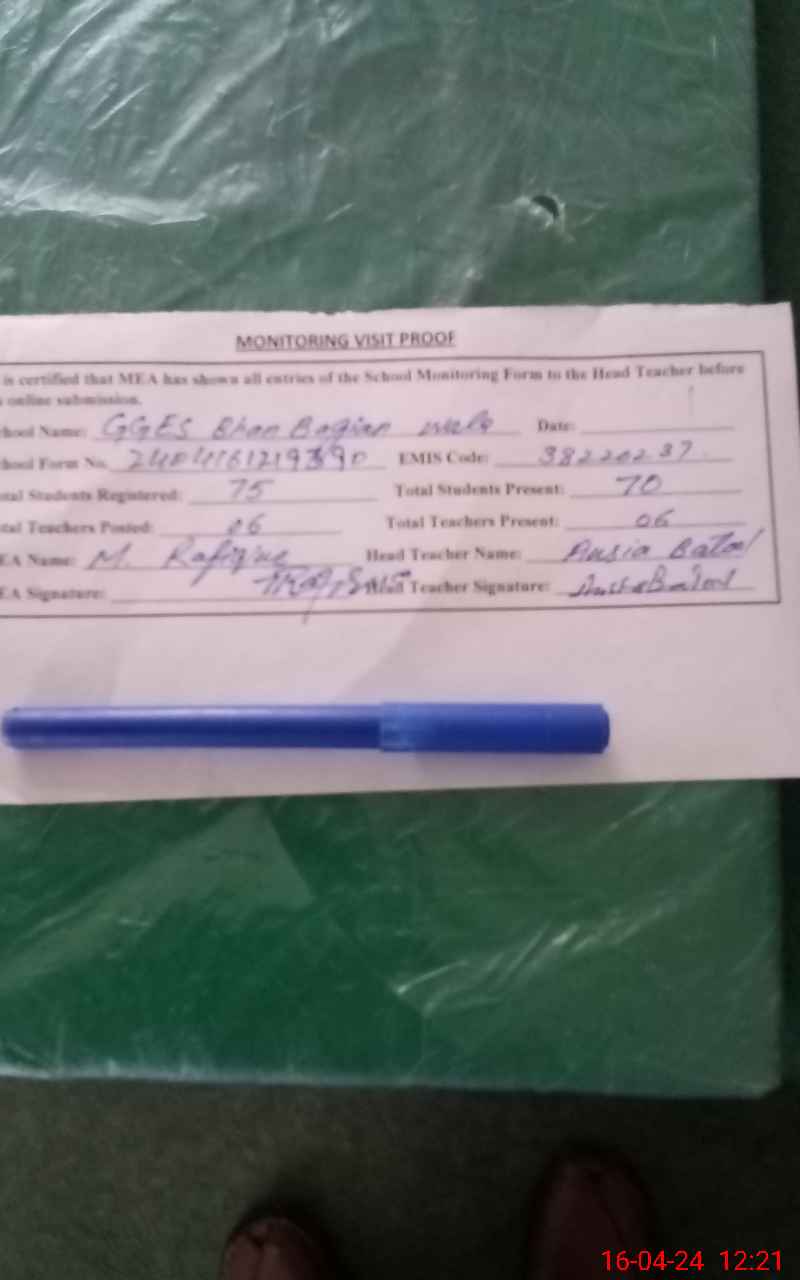 MONITORING VISIT PROOF
is certified that MEA has shown all entries of the School Monitoring Form to the Head Teacher before
online submission.
hool Name: GGES Bhan Bagian wala Date:
hool Form No. EMIS Code: 38220237
tal Students Registered: 75 Total Students Present: 70
tal Teachers Posted: 06 Total Teachers Present: 06
EA Name: M. Rafique Head Teacher Name: Ansia Batool
EA Signature: Head Teacher Signature:
16-04-24 12:21